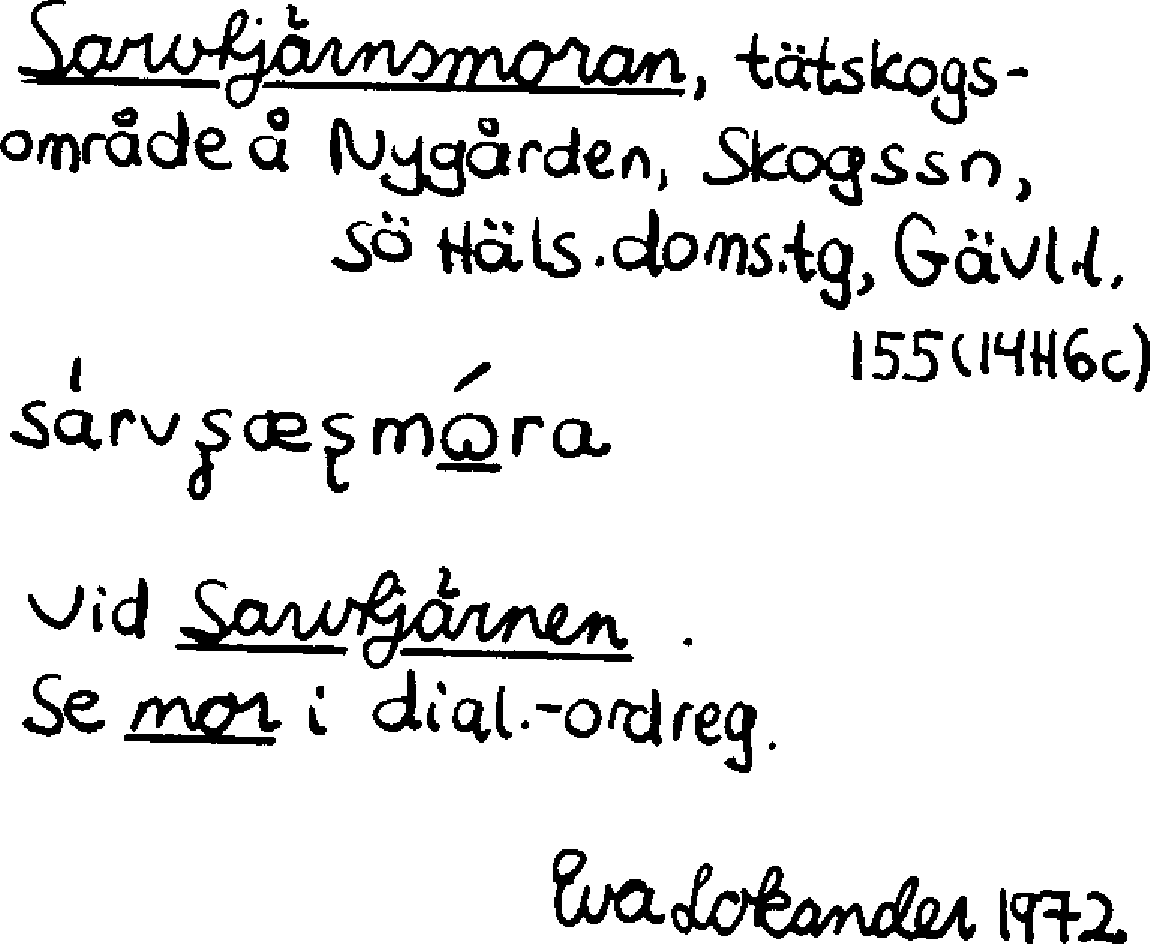 Sarvtjärnsmoran, tätskogs-
område å Nygården, Skogs sn,
sö Häls. doms.tg, Gävl.l.
155 (14H6c)
vid Sarvtjärnen.
Se mor i dial.-ordreg.
Eva Lokander 1972